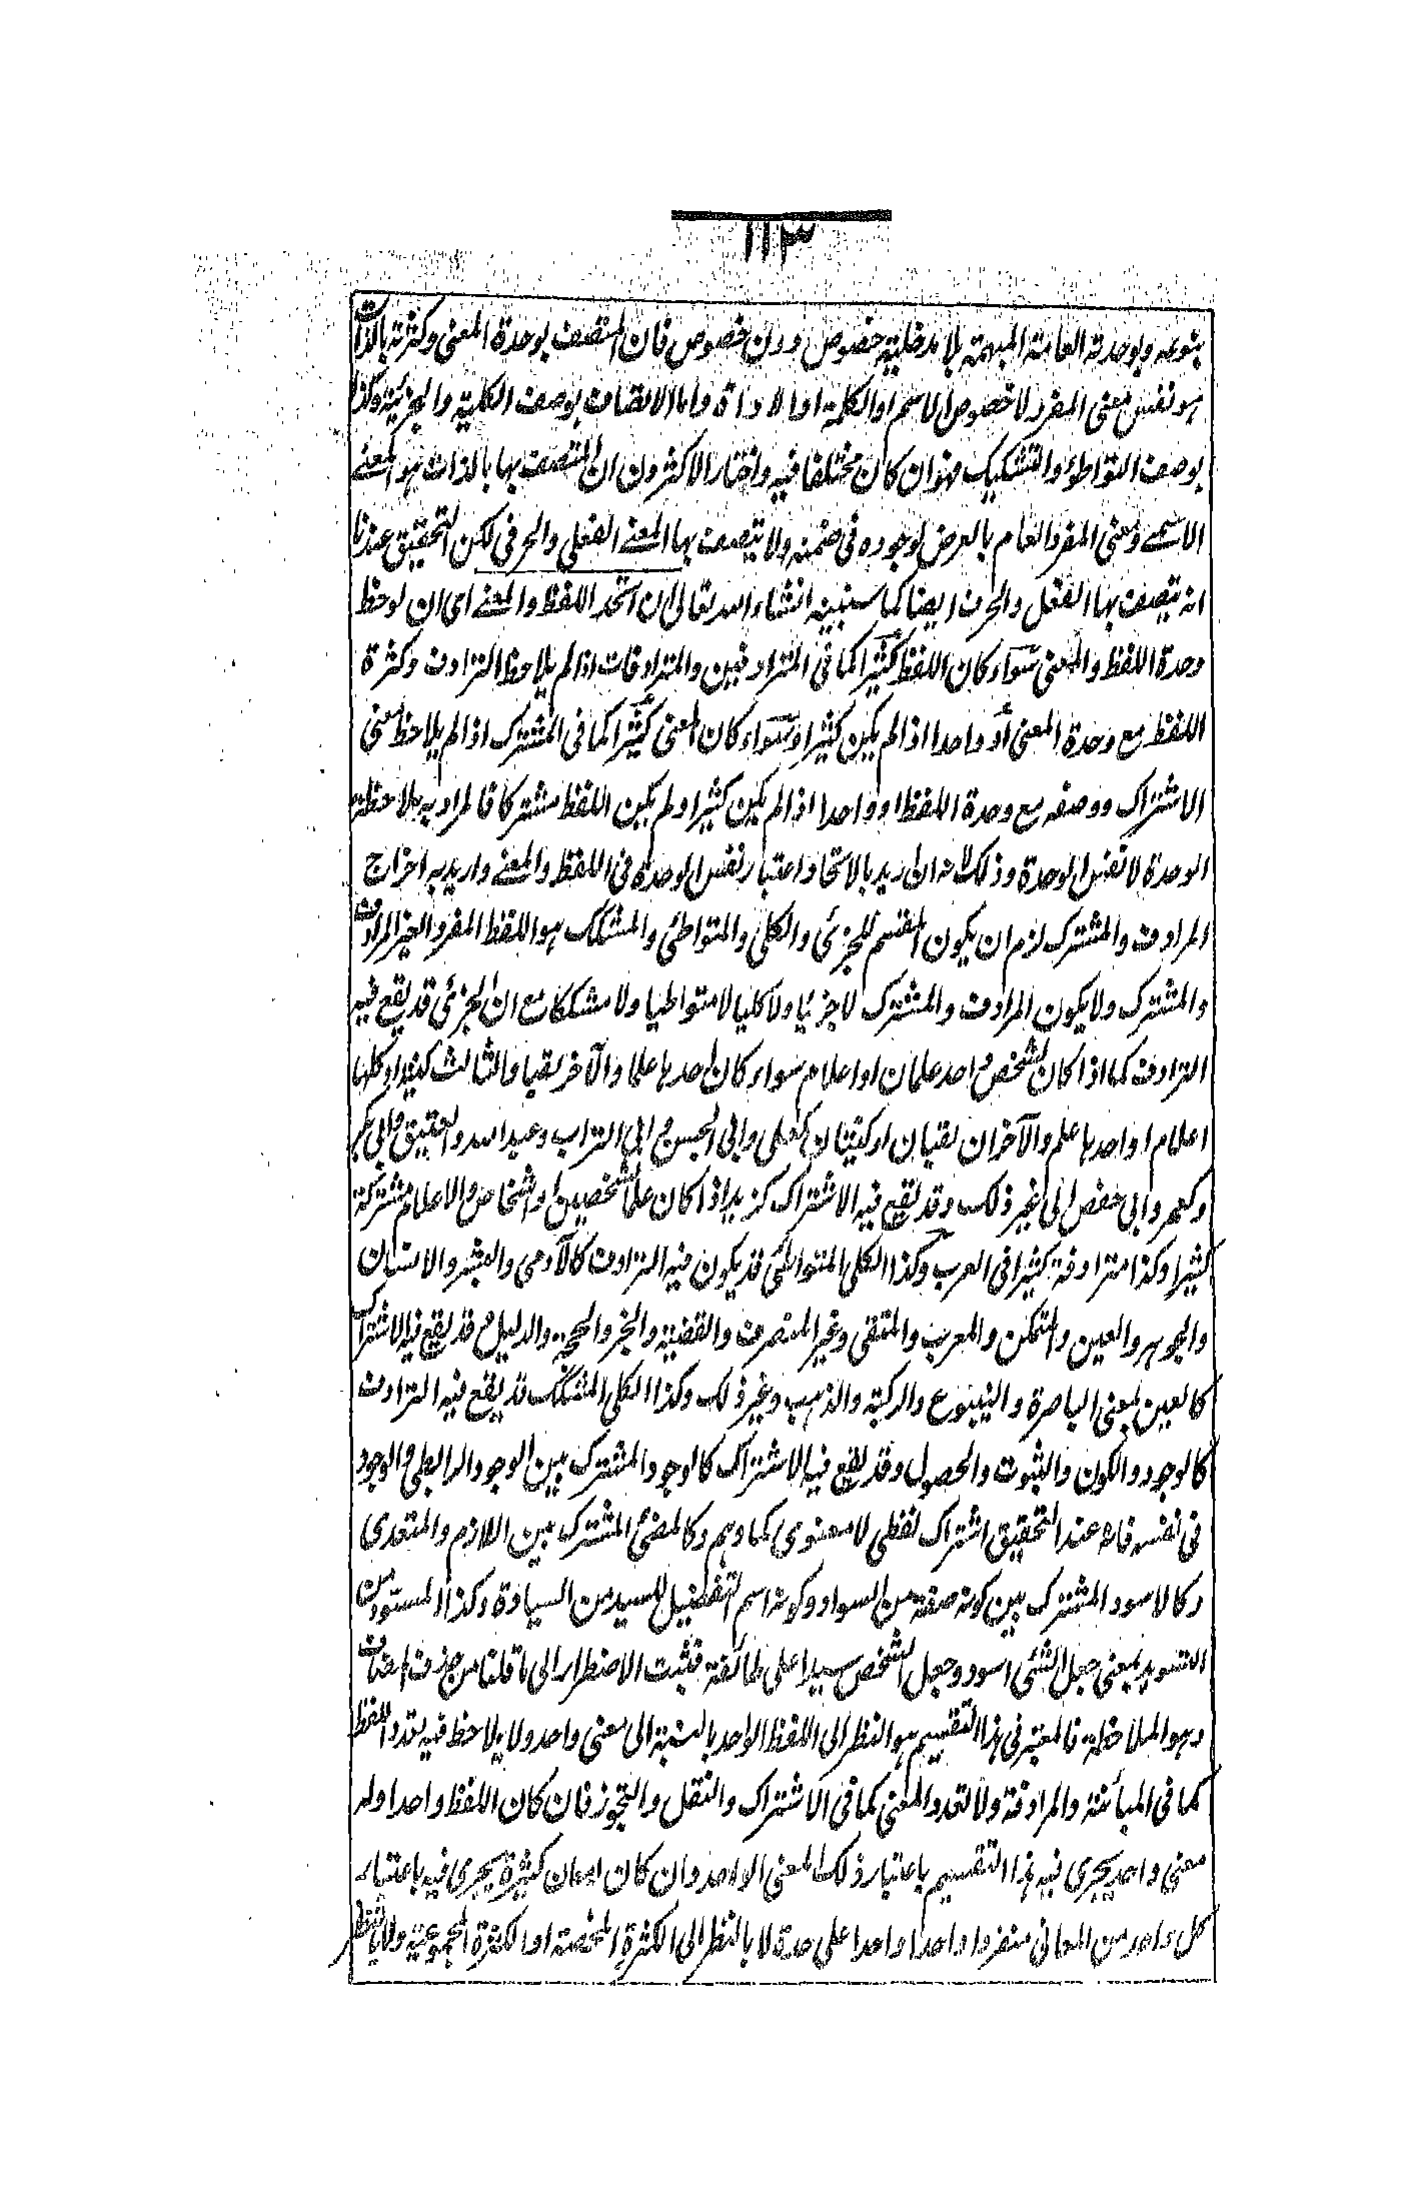 ١١٣
بنوعه وبوحدته العامة المبهمة بلا مدخلية خصوص دون خصوص فان المتصف بوحدة المعنى وكثرته بالذات
هو نفس معنى المفرد لا خصوص الاسم او الكلمة او الاداة واما الاتصاف بوصف الكلية والجزئية وكذا
بوصف التواطؤ والتشكيك فهو ان كان مختلفا فيه واختار الاكثرون ان المتصف بها بالذات هو المعنى
الاسمى ومعنى المفرد العام بالعرض لوجوده فى ضمنه ولا يتصف بها المعنى الفعلى والحرفى لكن التحقيق عندنا
انه يتصف بها الفعل والحرف ايضا كما سنبينه انشاء الله تعالى ان اتحد اللفظ والمعنى اى ان لوحظ
وحدة اللفظ والمعنى سواء كان اللفظ كثيرا كما فى المترادفين والمترادفات اذا لم يلاحظ الترادف وكثرة
اللفظ مع وحدة المعنى أو واحدا اذا لم يكن كثيرا وسواء كان المعنى كثيرا كما فى المشترك اذا لم يلاحظ معنى
الاشتراك ووصفه مع وحدة اللفظ او واحدا اذا لم يكن كثيرا ولم يكن اللفظ مشتركا فالمراد به ملاحظة
الوحدة لا نفس الوحدة وذلك لانه ان اريد بالاتحاد اعتبار نفس الوحدة فى اللفظ والمعنى واريد به اخراج
المرادف والمشترك لزم ان يكون المقسم للجزئى والكلى والمتواطئ والمشكك هو اللفظ المفرد الغير المرادف
والمشترك ولا يكون المرادف والمشترك لا جزئيا ولا كليا لا متواطيا ولا مشككا مع ان الجزئى قد يقع فيه
الترادف كما اذا كان لشخص واحد علمان او اعلام سواء كان احدها علما والآخر لقبا والثالث كنية او كلها
اعلام او احدها علم والآخران لقبان او كنيتان كعلى وابى الحسن وابى التراب وعبد الله والعتيق وابى بكر
وكعمر وابى حفص الى غير ذلك وقد يقع فيه الاشتراك كزيد اذا كان علما لشخصين او اشخاص والاعلام مشتركة
كثيرا وكذا مترادفة كثيرا فى العرب وكذا الكلى المتواطئ قد يكون فيه الترادف كالآدمى والبشر والانسان
والجوهر والعين والتمكن والمعرب والمتقى وغير المنصرف والقضية والخبر والحجة والدليل وقد يقع فيه الاشتراك
كالعين بمعنى الباصرة والينبوع والركبة والذهب وغير ذلك وكذا الكلى المشكك قد يقع فيه الترادف
كالوجود والكون والثبوت والحصول وقد يقع فيه الاشتراك كالوجود المشترك بين الوجود الرابطى والوجود
فى نفسه فانه عند التحقيق اشتراك لفظى لا معنوى كما وهم وكالمضئ المشترك بين اللازم والمتعدى
وكالاسود المشترك بين كونه صفة من السواد وكونه اسم التفضيل للسيد من السيادة وكذا المسود من
التسويد بمعنى جعل الشئ اسود وجعل الشخص سيدا على طائفة فثبت الاضطرار الى ما قلنا من حذف المضاف
وهو الملاحظة فالمعتبر فى هذا التقسيم هو النظر الى اللفظ الواحد بالنسبة الى معنى واحد ولا يلاحظ فيه تعدد اللفظ
كما فى المبائنة والمرادفة ولا تعدد المعنى كما فى الاشتراك والنقل والتجوز فان كان اللفظ واحدا وله
معنى واحد يجرى فيه هذا التقسيم باعتبار ذلك المعنى الواحد وان كان له معان كثيرة يجرى فيه باعتبار
كل واحد من المعانى منفردا واحدا واحدا على حدة لا بالنظر الى الكثرة المحضة او الكثرة المجموعية ولا بالنظر